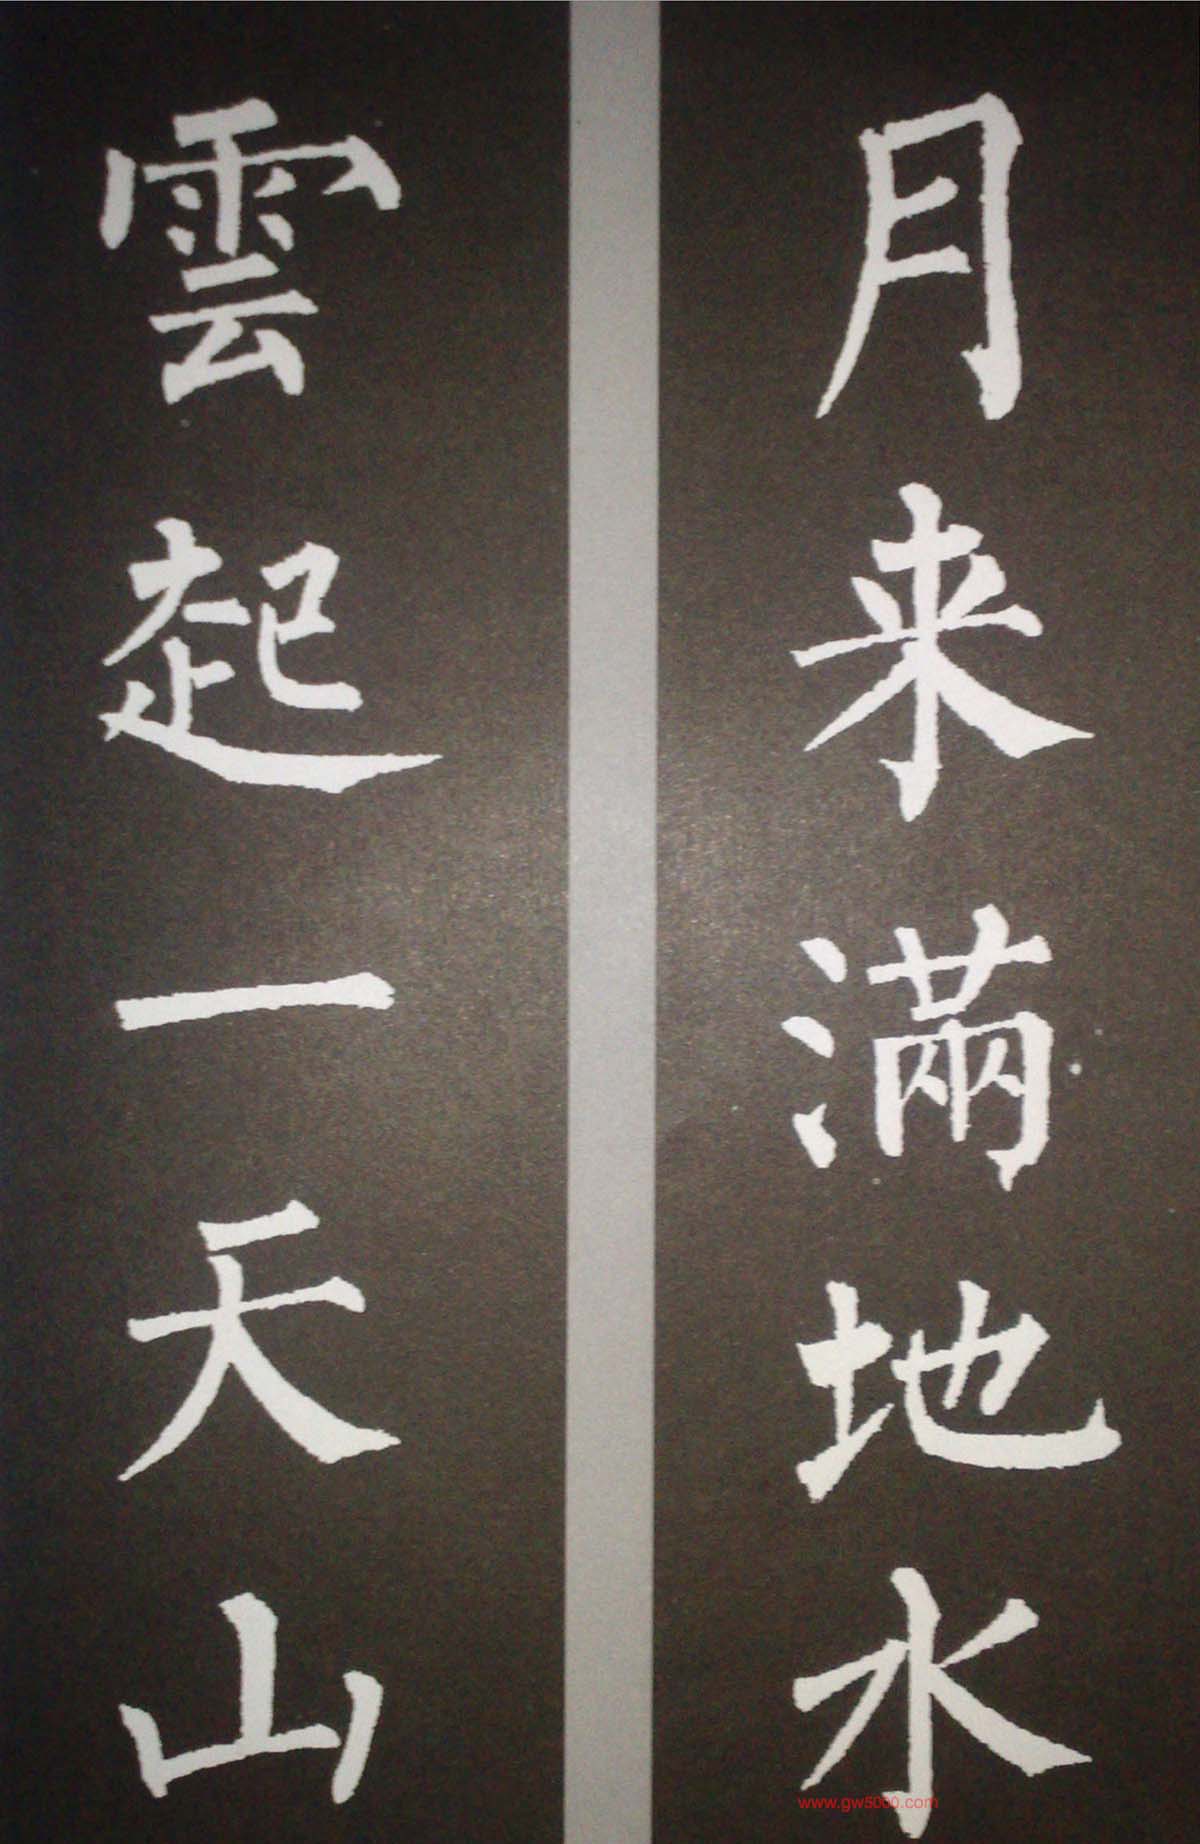 月来滿地水
雲起一天山
www.gw5000.com